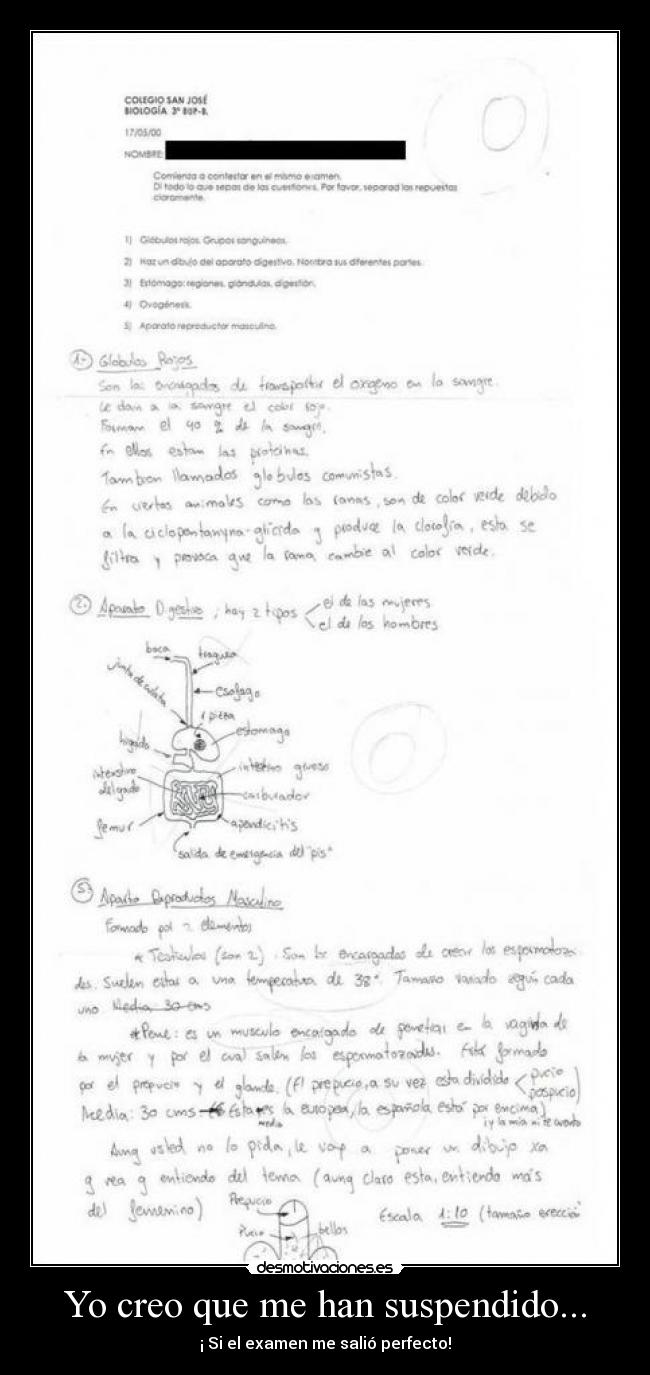 COLEGIO SAN JOSÉ
BIOLOGÍA 3º BUP-B.
17/05/00
NOMBRE:
0
Comienza a contestar en el mismo examen.
Di todo lo que sepas de las cuestiones. Por favor, separad las repuestas
claramente.
1) Glóbulos rojos. Grupos sanguíneos.
2) Haz un dibujo del aparato digestivo. Nombra sus diferentes partes.
3) Estómago: regiones, glándulas, digestión.
4) Ovogénesis.
5) Aparato reproductor masculino.
1- Globulos Rojos
Son los encargados de transportar el oxigeno en la sangre.
Le dan a la sangre el color rojo.
Forman el 40 % de la sangre.
En ellos estan las proteinas.
Tambien llamados globulos comunistas.
En ciertos animales como las ranas, son de color verde debido
a la ciclopentamyna-glicida q produce la clorofia, esta se
filtra y provoca que la rana cambie al color verde.
2. Aparato Digestivo ; hay 2 tipos
el de las mujeres
el de los hombres
boca
traquea
junta de culata
esofago
pizza
estomago
higado
intestino grueso
intenstino
delgado
carburador
femur
apendicitis
salida de emergencia del "pis"
0
5. Aparato Reproductos Masculino
Formado por 2 elementos
* Testiculos (son 2). Son los encargados de crear los espermatozoi-
des. Suelen estar a una temperatura de 38º. Tamaño variado según cada
uno Media 30 cms
* Pene: es un musculo encargado de penetrar en la vagina de
la mujer y por el cual salen los espermatozoides. Está formado
por el prepucio y el glande. (El prepucio, a su vez esta dividido
pucio
pospucio)
Media: 30 cms. Esta es la europea, la española está por encima)
media
¡y la mia ni te cuento
Aunq usted no lo pida, le voy a poner un dibujo xa
q vea q entiendo del tema (aunq claro esta, entiendo más
del femenino)
Prepucio
Pucio
bellos
Escala 1:10 (tamaño erección
desmotivaciones.es
Yo creo que me han suspendido...
¡ Si el examen me salió perfecto!